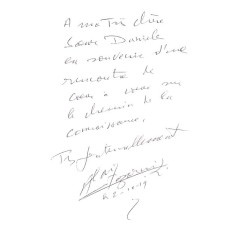 A ma Très chère
Sœur Danièle
en souvenir d'une
rencontre de
cœur à cœur sur
le chemin de la
connaissance,
Très fraternellement
Alain
le 2-10-19